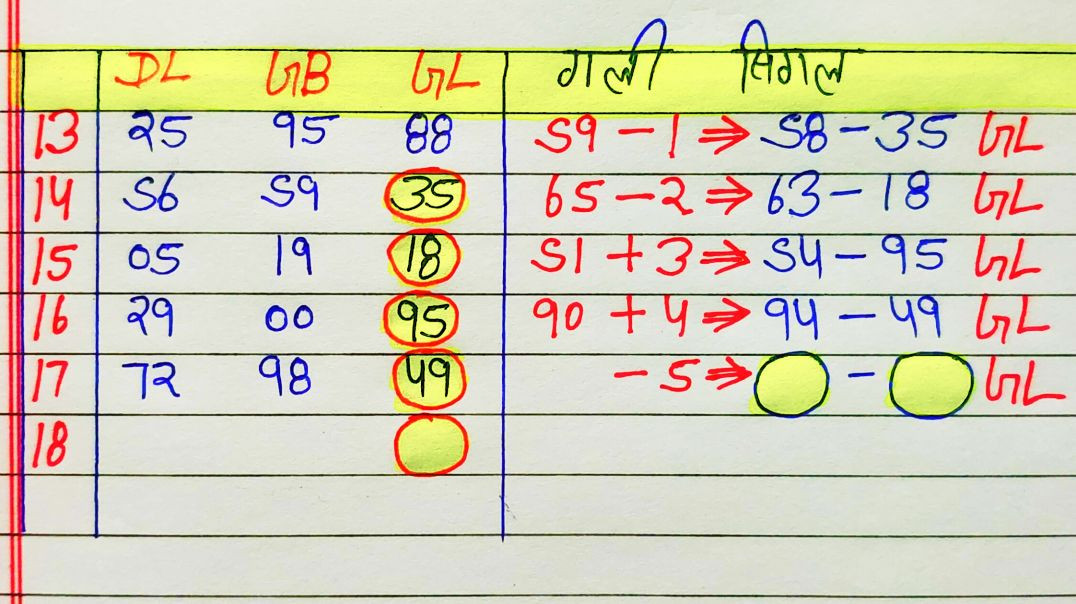 DL GB GL गली सिगल
13 25 95 88 59 - 1 ⇒ 58 - 35 GL
14 56 59 35 65 - 2 ⇒ 63 - 18 GL
15 05 19 18 51 + 3 ⇒ 54 - 95 GL
16 29 00 95 90 + 4 ⇒ 94 - 49 GL
17 72 98 49 - 5 ⇒ - GL
18